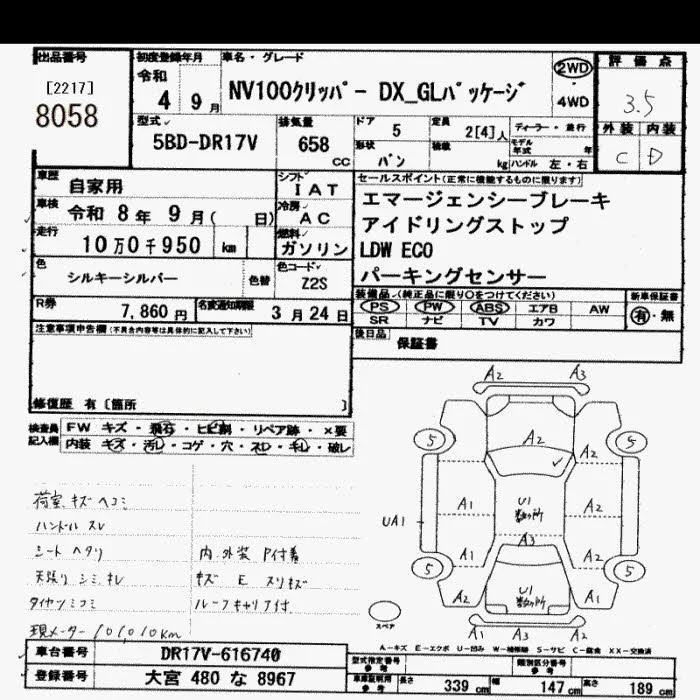 出品番号
[2217]
8058
初度登録年月
令和
4年9月
車名・グレード
NV100クリッパー DX_GLパッケージ
2WD
・
4WD
評価点
3.5
外装 内装
C D
型式
5BD-DR17V
排気量
658
CC
ドア 5
形状 バン
定員 2[4]人
積載 kg
ディーラー・並行
モデル年式 年
ハンドル 左・右
車歴 自家用
車検 令和 8年 9月( 日)
走行 10万0千950 km
色 シルキーシルバー 色替
R券 7,860円
名変通知期限 3月24日
シフト IAT
冷房 AC
燃料 ガソリン
色コード Z2S
セールスポイント(正常に機能するものに限ります)
エマージェンシーブレーキ
アイドリングストップ
LDW ECO
パーキングセンサー
装備品(純正品に限り○をつけてください)
PS PW ABS エアB AW
SR ナビ TV カワ
新車保証書
有・無
後日品 保証書
注意事項申告欄(不具合内容等は具体的に記入して下さい)
修復歴 有〔箇所 〕
検査員記入欄
FW キズ・飛石・ヒビ割・リペア跡・×要
内装 キズ・汚レ・コゲ・穴・スレ・キレ・破レ
荷室 キズ ヘコミ
ハンドル スレ
シート ヘタリ
天張り シミ キレ
タイヤツミコミ
現メーター 101,010km
内.外装 P付着
キズ E スリキズ
ルーフキャリア付
A2 A3
A2
5 5
A2 A2
A1 U1 数ヶ所 A2
UA1
A3
A1 A2
5 5
A2 U1 数ヶ所 A1
A1 A3 A2
スペア
A-キズ E-エクボ U-凹み W-補修跡 S-サビ C-腐食 XX-交換済
車台番号 DR17V-616740
登録番号 大宮 480 な 8967
型式指定番号 参考
類別区分番号 参考
車庫証明用 参考
長さ 339 cm 幅 147 cm 高さ 189 cm